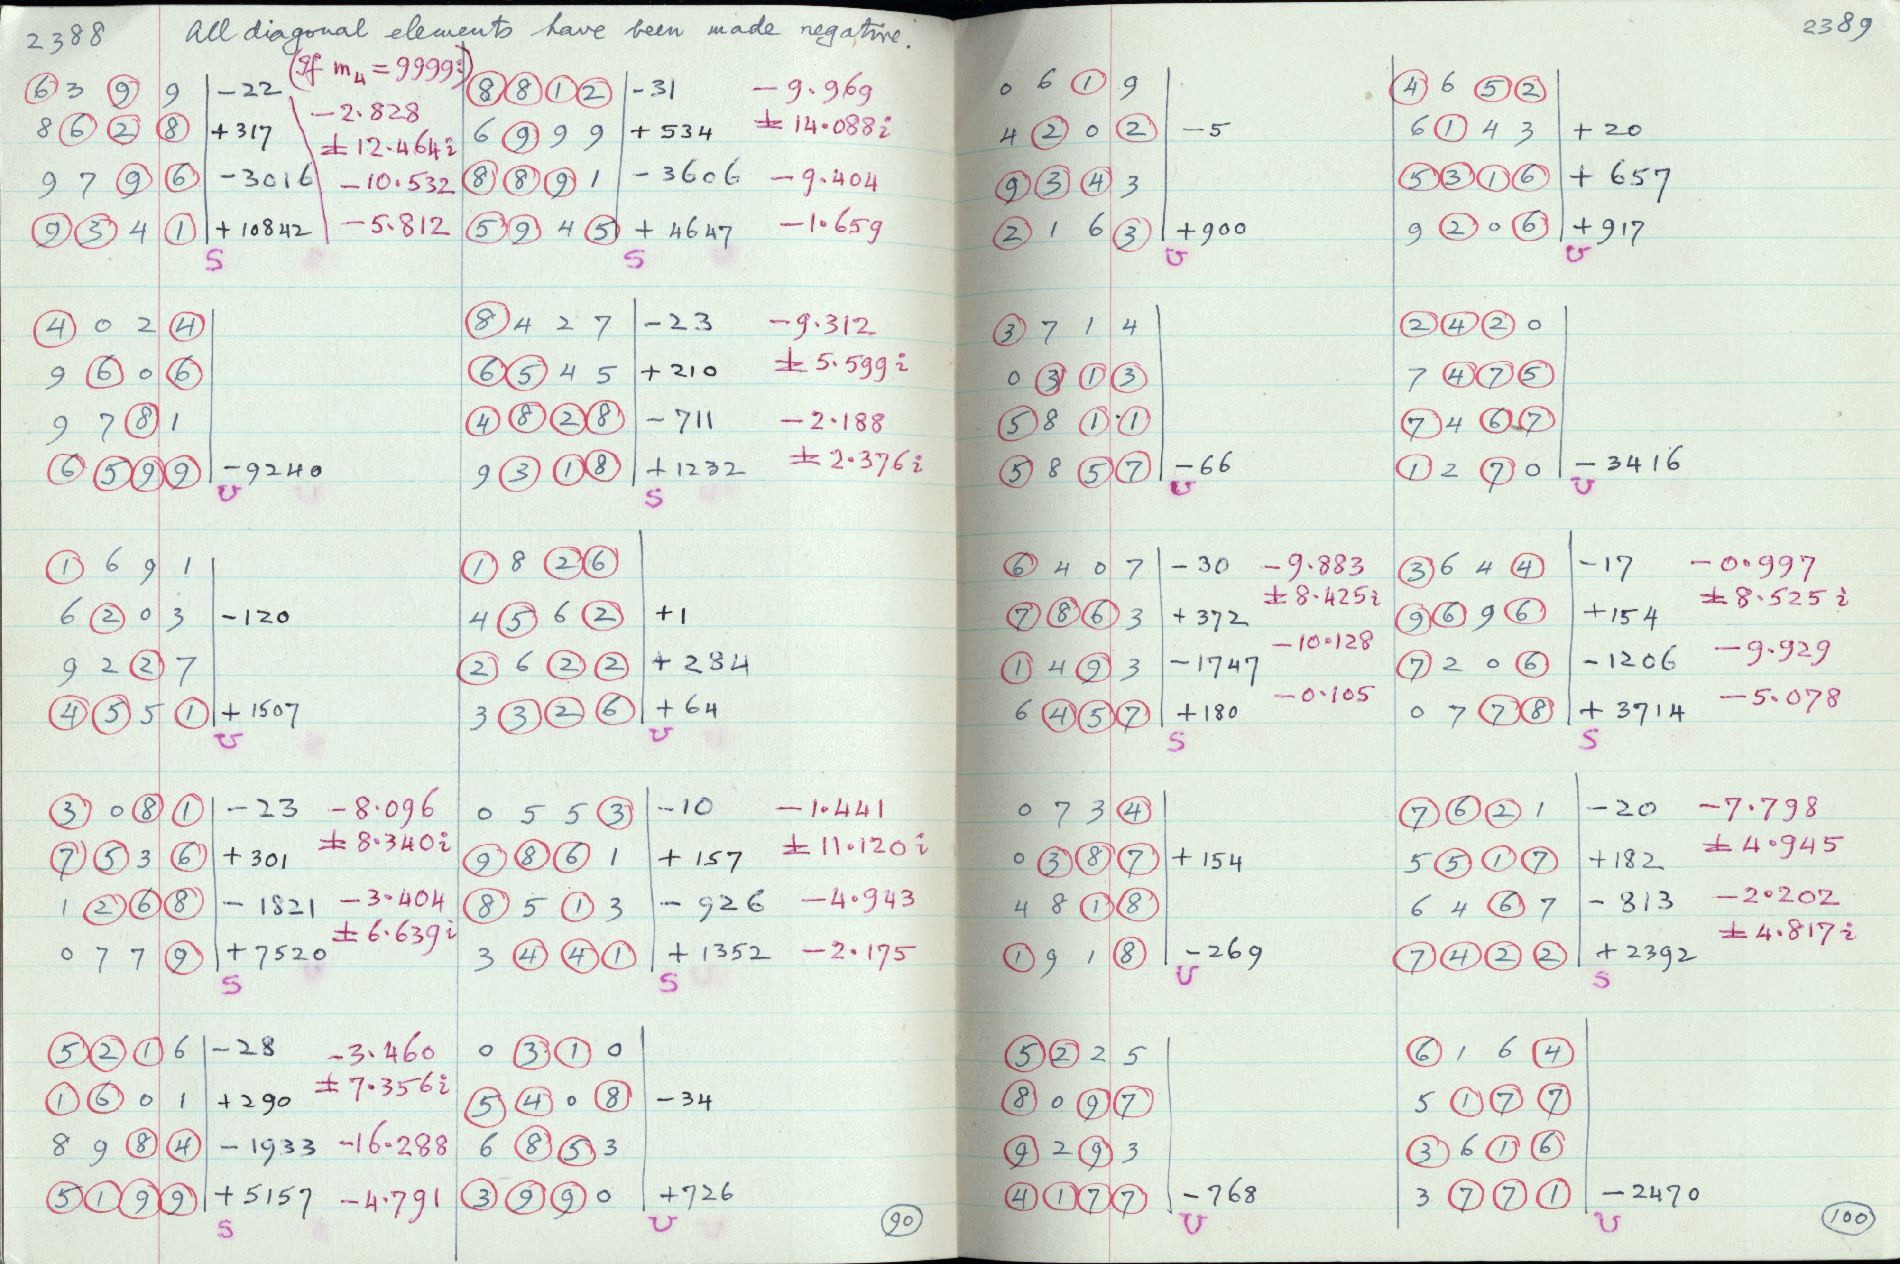 2388 All diagonal elements have been made negative.
(If m₄ = 9999i)
6 3 9 9 -22 -2.828
8 6 2 8 +317 ± 12.464i
9 7 9 6 -3016 -10.532
9 3 4 1 +10842 -5.812
S
8 8 1 2 -31 -9.969
6 9 9 9 +534 ± 14.088i
8 8 9 1 -3606 -9.404
5 9 4 5 +4647 -1.659
S
4 0 2 4
9 6 0 6
9 7 8 1
6 5 9 9 -9240
U
8 4 2 7 -23 -9.312
6 5 4 5 +210 ± 5.599i
4 8 2 8 -711 -2.188
9 3 1 8 +1232 ± 2.376i
S
1 6 9 1
6 2 0 3 -120
9 2 2 7
4 5 5 1 +1507
U
1 8 2 6
4 5 6 2 +1
2 6 2 2 +284
3 3 2 6 +64
U
3 0 8 1 -23 -8.096
7 5 3 6 +301 ± 8.340i
1 2 6 8 -1821 -3.404
0 7 7 9 +7520 ± 6.639i
S
0 5 5 3 -10 -1.441
9 8 6 1 +157 ± 11.120i
8 5 1 3 -926 -4.943
3 4 4 1 +1352 -2.175
S
5 2 1 6 -28 -3.460
1 6 0 1 +290 ± 7.356i
8 9 8 4 -1933 -16.288
5 1 9 9 +5157 -4.791
S
0 3 1 0
5 4 0 8 -34
6 8 5 3
3 9 9 0 +726
U
90
2389
0 6 1 9
4 2 0 2 -5
9 3 4 3
2 1 6 3 +900
U
4 6 5 2
6 1 4 3 +20
5 3 1 6 +657
9 2 0 6 +917
U
3 7 1 4
0 3 1 3
5 8 1 1
5 8 5 7 -66
U
2 4 2 0
7 4 7 5
7 4 6 7
1 2 7 0 -3416
U
6 4 0 7 -30 -9.883
7 8 6 3 +372 ± 8.425i
1 4 9 3 -1747 -10.128
6 4 5 7 +180 -0.105
S
3 6 4 4 -17 -0.997
9 6 9 6 +154 ± 8.525i
7 2 0 6 -1206 -9.929
0 7 7 8 +3714 -5.078
S
0 7 3 4
0 3 8 7 +154
4 8 1 8
1 9 1 8 -269
U
7 6 2 1 -20 -7.798
5 5 1 7 +182 ± 4.945
6 4 6 7 -813 -2.202
7 4 2 2 +2392 ± 4.817i
S
5 2 2 5
8 0 9 7
9 2 9 3
4 1 7 7 -768
U
6 1 6 4
5 1 7 7
3 6 1 6
3 7 7 1 -2470
U
100